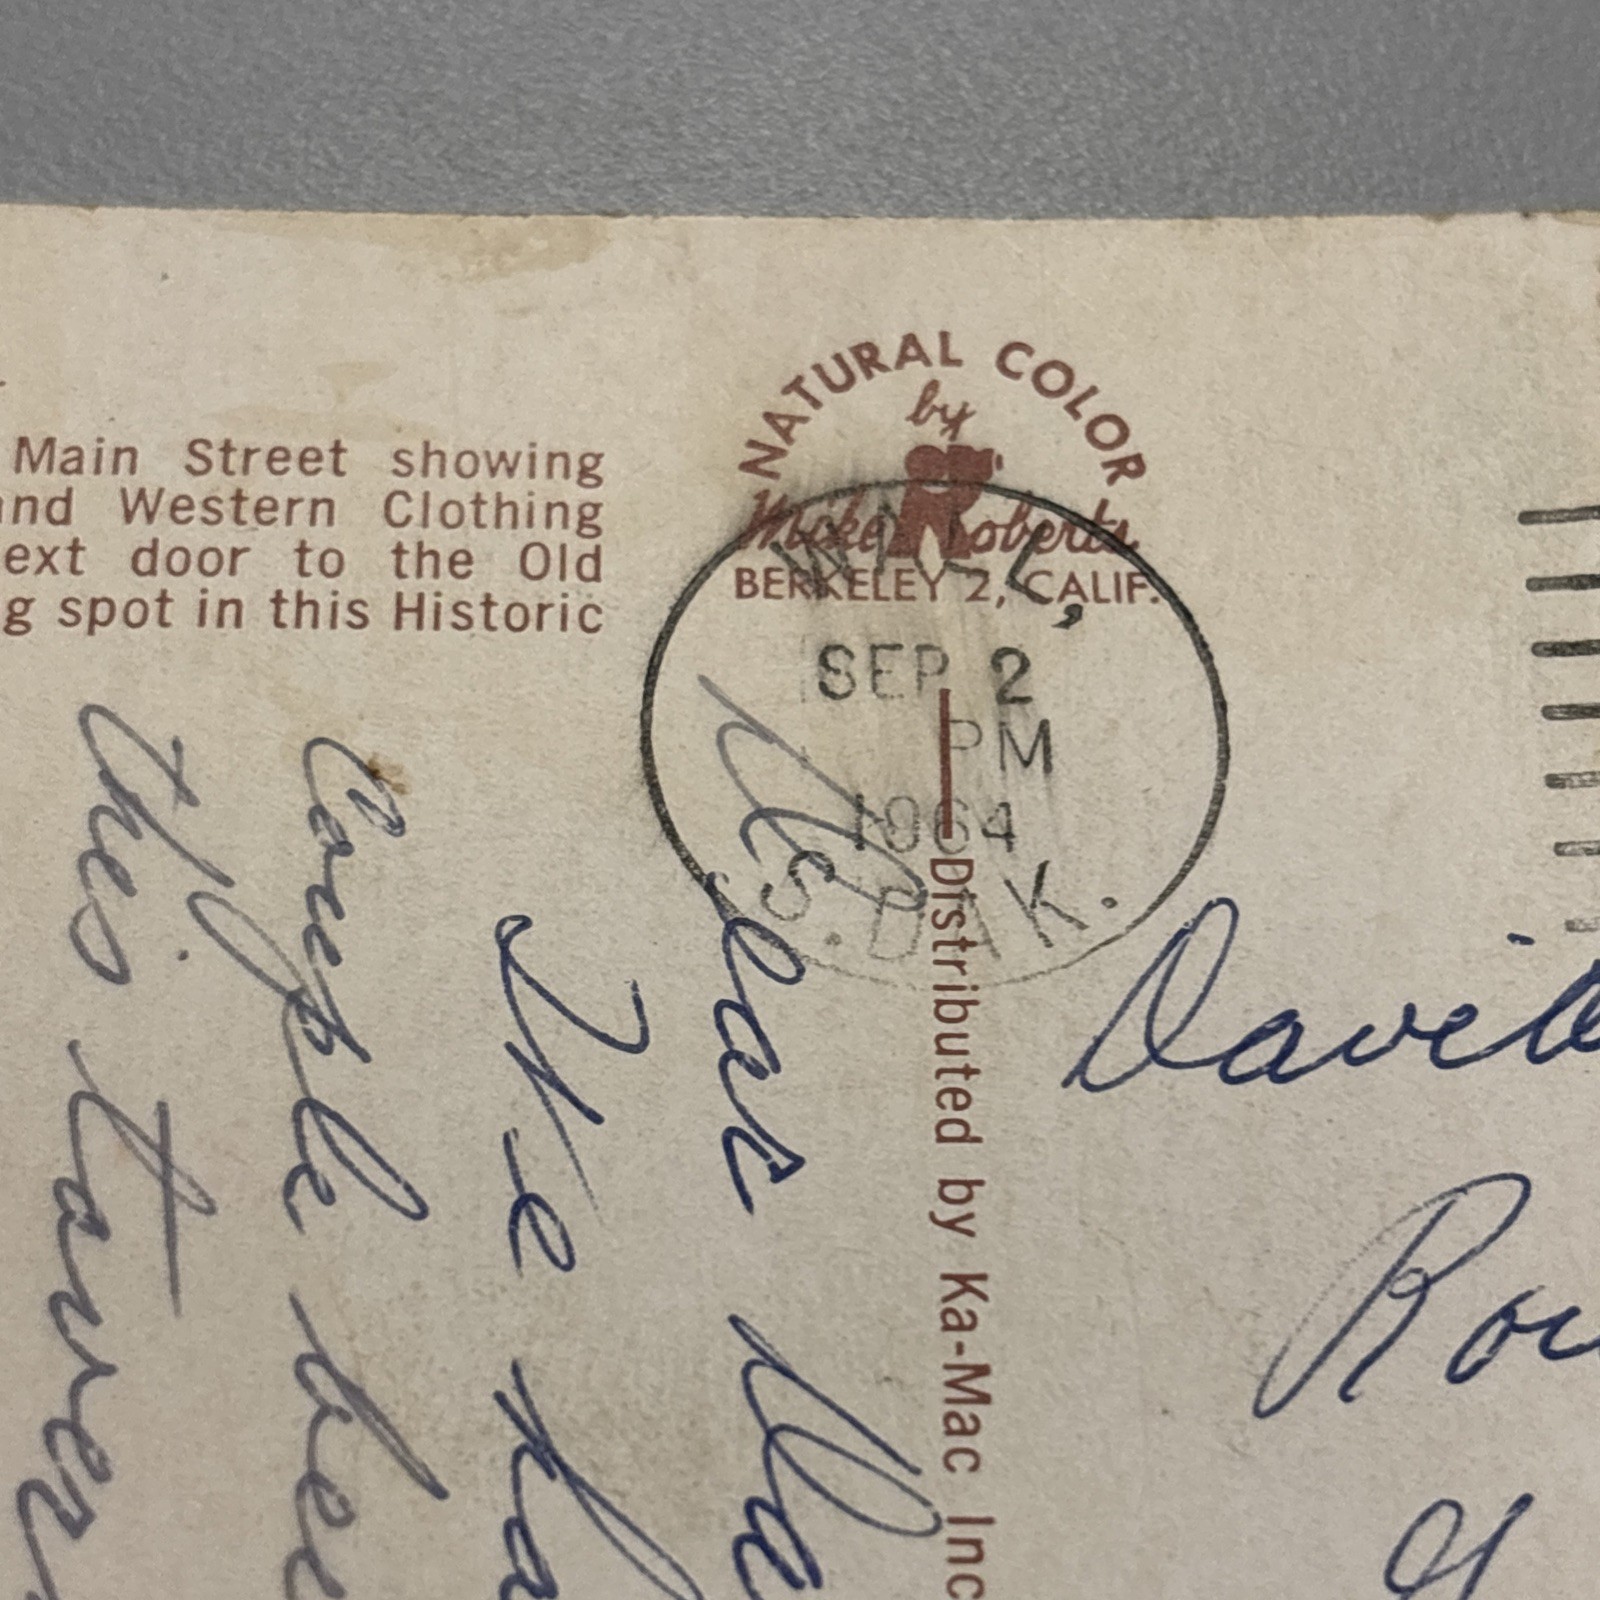 Main Street showing
and Western Clothing
ext door to the Old
g spot in this Historic
NATURAL COLOR
by
Mike Roberts
BERKELEY 2, CALIF.
SEP 2
PM
1964
S. DAK.
Distributed by Ka-Mac Inc
Dear Da
We ha
Couple bee
this tavern
David
Rou